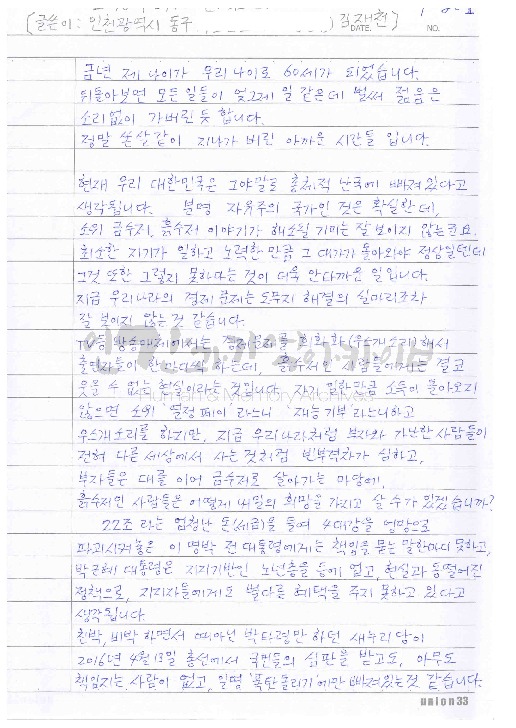 [글쓴이 : 인천광역시 동구 ) 김재천]
DATE.
NO.
금년 제 나이가 우리나이로 60세가 되었습니다.
뒤돌아보면 모든 일들이 엊그제 일 같은데 벌써 젊음은
소리없이 가버린 듯 합니다.
정말 쏜살같이 지나가 버린 아까운 시간들 입니다.
현재 우리 대한민국은 그야말로 총체적 난국에 빠져있다고
생각됩니다. 분명 자유주의 국가인 것은 확실한데,
소위 금수저, 흙수저 이야기가 해소될 기미는 잘 보이지 않는군요.
최소한 자기가 일하고 노력한 만큼 그 대가가 돌아와야 정상일텐데
그것 또한 그렇지 못하다는 것이 더욱 안타까운 일입니다.
지금 우리나라의 경제문제는 도무지 해결의 실마리조차
잘 보이지 않는 것 같습니다.
TV등 방송매체에서는 경제문제를 희화화 (우스개소리)해서
출연자들이 한마디씩 하는데, 흙수저인 사람들에게는 결코
웃을 수 없는 현실이라는 것입니다. 자기 일한만큼 소득이 돌아오지
않으면 소위 '열정페이'라느니 '재능기부'라느니하고
우스개소리를 하지만, 지금 우리나라처럼 부자와 가난한 사람들이
전혀 다른 세상에서 사는것처럼 빈부격차가 심하고,
부자들은 대를 이어 금수저로 살아가는 마당에,
흙수저인 사람들은 어떻게 내일의 희망을 가지고 살 수가 있겠습니까?
22조 라는 엄청난 돈(세금)을 들여 4대강을 엉망으로
파괴시켜놓은 이명박 전 대통령에게는 책임을 묻는 말한마디 못하고,
박근혜 대통령은 지지기반인 노년층을 등에 업고, 현실과 동떨어진
정책으로, 지지자들에게도 별다를 혜택을 주지 못하고 있다고
생각됩니다.
친박, 비박 하면서 때아닌 박타령만 하던 새누리당이
2016년 4월 13일 총선에서 국민들의 심판을 받고도, 아무도
책임지는 사람이 없고, 일명 '폭탄돌리기'에만 빠져있는것 같습니다.
Human & Memory Archives
union 33